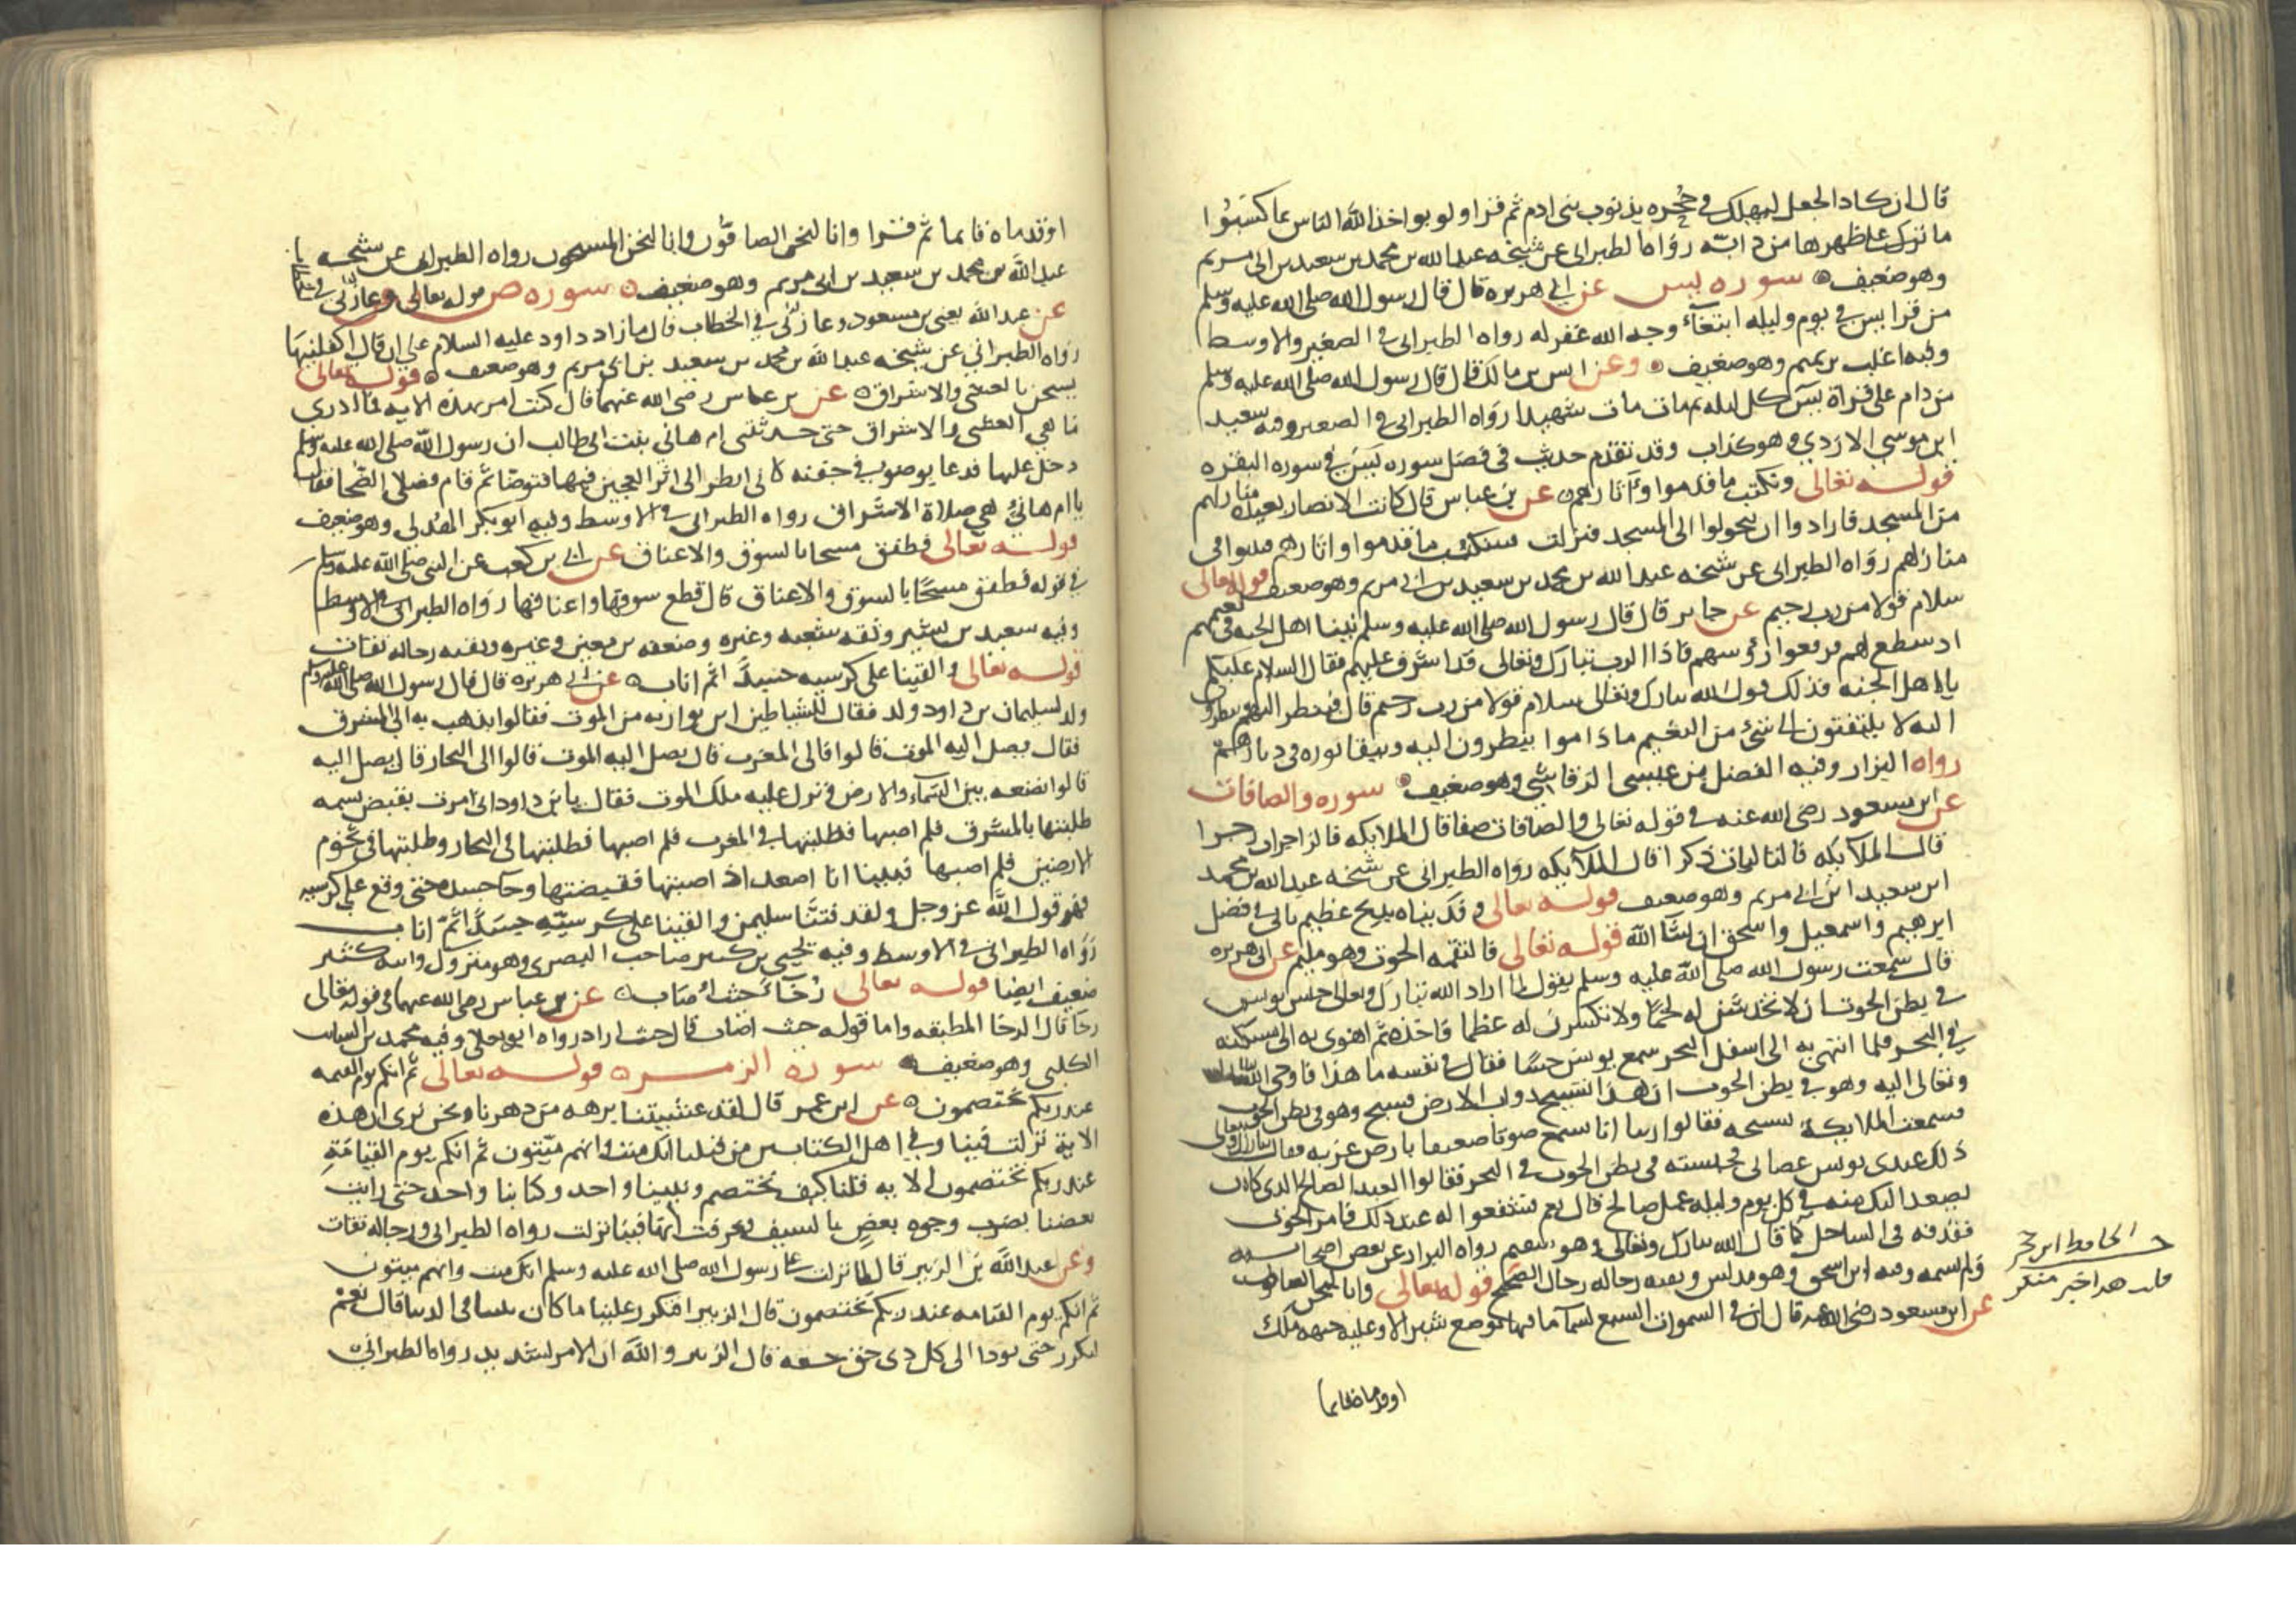 قال ان كاد الجعل ليهلك في جحره بذنوب بني ادم ثم قرا ولو يواخذ الله الناس بما كسبوا
ما ترك على ظهرها من دابة رواه الطبراني عن شيخه عبد الله بن محمد بن سعيد بن ابي مريم
وهو ضعيف سورة يس عن ابي هريرة قال قال رسول الله صلى الله عليه وسلم
من قرا يس في يوم وليلة ابتغاء وجه الله غفر له رواه الطبراني في الصغير والاوسط
وفيه اغلب بن تميم وهو ضعيف وعن انس بن مالك قال قال رسول الله صلى الله عليه وسلم
من دام على قراة يس كل ليلة ثم مات مات شهيدا رواه الطبراني في الصغير وفيه سعيد
ابن موسى الازدي وهو كذاب وقد تقدم حديث في فضل سورة يس في سورة البقرة
قوله تعالى ونكتب ما قدموا وآثارهم عن بن عباس قال كانت الانصار بعيدة منازلهم
من المسجد فارادوا ان يتحولوا الى المسجد فنزلت سنكتب ما قدموا واثارهم فثبتوا في
منازلهم رواه الطبراني عن شيخه عبد الله بن محمد بن سعيد بن ابي مريم وهو ضعيف قوله تعالى
سلام قولا من رب رحيم عن جابر قال قال رسول الله صلى الله عليه وسلم بينا اهل الجنة في نعيمهم
اذ سطع لهم فرفعوا رؤسهم فاذا الرب تبارك وتعالى قد اشرف عليهم فقال السلام عليكم
يا اهل الجنة فذلك قول الله تبارك وتعالى سلام قولا من رب رحيم قال فينظر اليهم وينظرون
اليه لا يلتفتون الى شئ من النعيم ما داموا ينظرون اليه ويبقا نوره في ديارهم
رواه البزار وفيه الفضل بن عيسى الرقاشي وهو ضعيف سورة والصافات
عن ابن مسعود رضي الله عنه في قوله تعالى والصافات صفا قال الملايكة فالزاجرات زجرا
قال الملآيكة فالتاليات ذكرا قال الملآيكة رواه الطبراني عن شيخه عبد الله بن محمد
ابن سعيد ابن ابي مريم وهو ضعيف قوله تعالى وفديناه بذبح عظيم ياتي في فضل
ابرهيم واسمعيل واسحق ان شآ الله قوله تعالى فالتقمه الحوت وهو مليم عن ابي هريرة
قال سمعت رسول الله صلى الله عليه وسلم يقول لما اراد الله تبارك وتعالى حبس يونس
في بطن الحوت ان لا تخدشن له لحما ولا تكسرن له عظما فاخذه ثم اهوى به الى مسكنه
في البحر فلما انتهى به الى اسفل البحر سمع يونس حسا فقال في نفسه ما هذا فاوحى الله تبارك
وتعالى اليه وهو في بطن الحوت ان هذا تسبيح دواب الارض فسبح وهو في بطن الحوت
فسمعت الملايكة تسبيحه فقالوا ربنا انا نسمع صوتا ضعيفا بارض غربة فقال تبارك وتعالى
ذلك عبدى يونس عصانى فحبسته في بطن الحوت في البحر فقالوا العبد الصالح الذى كان
يصعد اليك منه في كل يوم وليلة عمل صالح قال نعم فشفعوا له عند ذلك فامر الحوت
فقذفه في الساحل كما قال الله تبارك وتعالى وهو سقيم رواه البزار عن بعض اصحابه
ولم يسمه وفيه ابن اسحق وهو مدلس وبقية رجاله رجال الصحيح قوله تعالى وانا لنحن الصافون
عن ابن مسعود رضي الله عنه قال ان في السموات السبع لسمآ ما فيها موضع شبر الا وعليه جبهة ملك
او قدماه قايما
الحافظ ابن حجر
قلت هذا خبر منكر
او قدماه قايما ثم قرا وانا لنحن الصافون وانا لنحن المسبحون رواه الطبراني عن شيخه
عبد الله بن محمد بن سعيد بن ابي مريم وهو ضعيف سورة ص قوله تعالى وعزنى في
عن عبد الله يعني بن مسعود وعازنى في الخطاب قال ما زاد داود عليه السلام على ان قال اكفلنيها
رواه الطبراني عن شيخه عبد الله بن محمد بن سعيد بن ابي مريم وهو ضعيف قوله تعالى
يسبحن بالعشي والاشراق عن بن عباس رضي الله عنهما قال كنت امر بهذه الاية فما ادرى
ما هي العشي والاشراق حتى حدثتني ام هاني بنت ابي طالب ان رسول الله صلى الله عليه وسلم
دخل عليها فدعا بوضوء في جفنة كاني انظر الى اثر العجين فيها فتوضا ثم قام فصلى الضحا فقال
يا ام هانئ هي صلاة الاشراق رواه الطبراني في الاوسط وفيه ابو بكر الهذلي وهو ضعيف
قوله تعالى فطفق مسحا بالسوق والاعناق عن ابي بن كعب عن النبي صلى الله عليه وسلم
في قوله فطفق مسحا بالسوق والاعناق قال قطع سوقها واعناقها رواه الطبراني في الاوسط
وفيه سعيد بن بشير وثقه شعبة وغيره وضعفه بن معين وغيره وبقية رجاله ثقات
قوله تعالى والقينا على كرسيه جسدا ثم اناب عن ابي هريرة قال قال رسول الله صلى الله عليه وسلم
ولد لسليمان بن داود ولد فقال للشياطين اين نواريه من الموت فقالوا نذهب به الى المشرق
فقال يصل اليه الموت قالوا فالى المغرب قال يصل اليه الموت قالوا الى البحار قال يصل اليه
قالوا نضعه بين السماء والارض فنزل عليه ملك الموت فقال يابن داود اني امرت بقبض نسمة
طلبتها بالمشرق فلم اصبها فطلبتها في المغرب فلم اصبها فطلبتها في البحار وطلبتها في تخوم
الارضين فلم اصبها فبينا انا اصعد اذ اصبتها فقبضتها وجآ جسده حتى وقع على كرسيه
فهو قول الله عز وجل ولقد فتنا سليمن والقينا على كرسيه جسدا ثم اناب
رواه الطبراني في الاوسط وفيه يحيى بن كثير صاحب البصرى وهو متروك وابنه كثير
ضعيف ايضا قوله تعالى رخآء حيث اصاب عن بن عباس رضي الله عنهما في قوله تعالى
رخا قال الرخا المطيعة واما قوله حيث اصاب قال حيث اراد رواه ابو يعلى وفيه محمد بن السايب
الكلبي وهو ضعيف سورة الزمر قوله تعالى ثم انكم يوم القيمة
عند ربكم تختصمون عن ابن عمر قال لقد عشنا برهة من دهرنا ونحن نرى ان هذه
الاية نزلت فينا وفي اهل الكتابين من قبلنا انك ميت وانهم ميتون ثم انكم يوم القيامة
عند ربكم تختصمون الاية قلنا كيف نختصم ونبينا واحد وكتابنا واحد حتى رايت
بعضنا يضرب وجوه بعض بالسيف فعرفت انها فينا نزلت رواه الطبراني ورجاله ثقات
وعن عبد الله بن الزبير قال لما نزلت على رسول الله صلى الله عليه وسلم انك ميت وانهم ميتون
ثم انكم يوم القيامة عند ربكم تختصمون قال الزبير افتكرر علينا ما كان بيننا في الدنيا قال نعم
ليكرر حتى يودا الى كل ذى حق حقه قال الزبير والله ان الامر لشديد رواه الطبراني